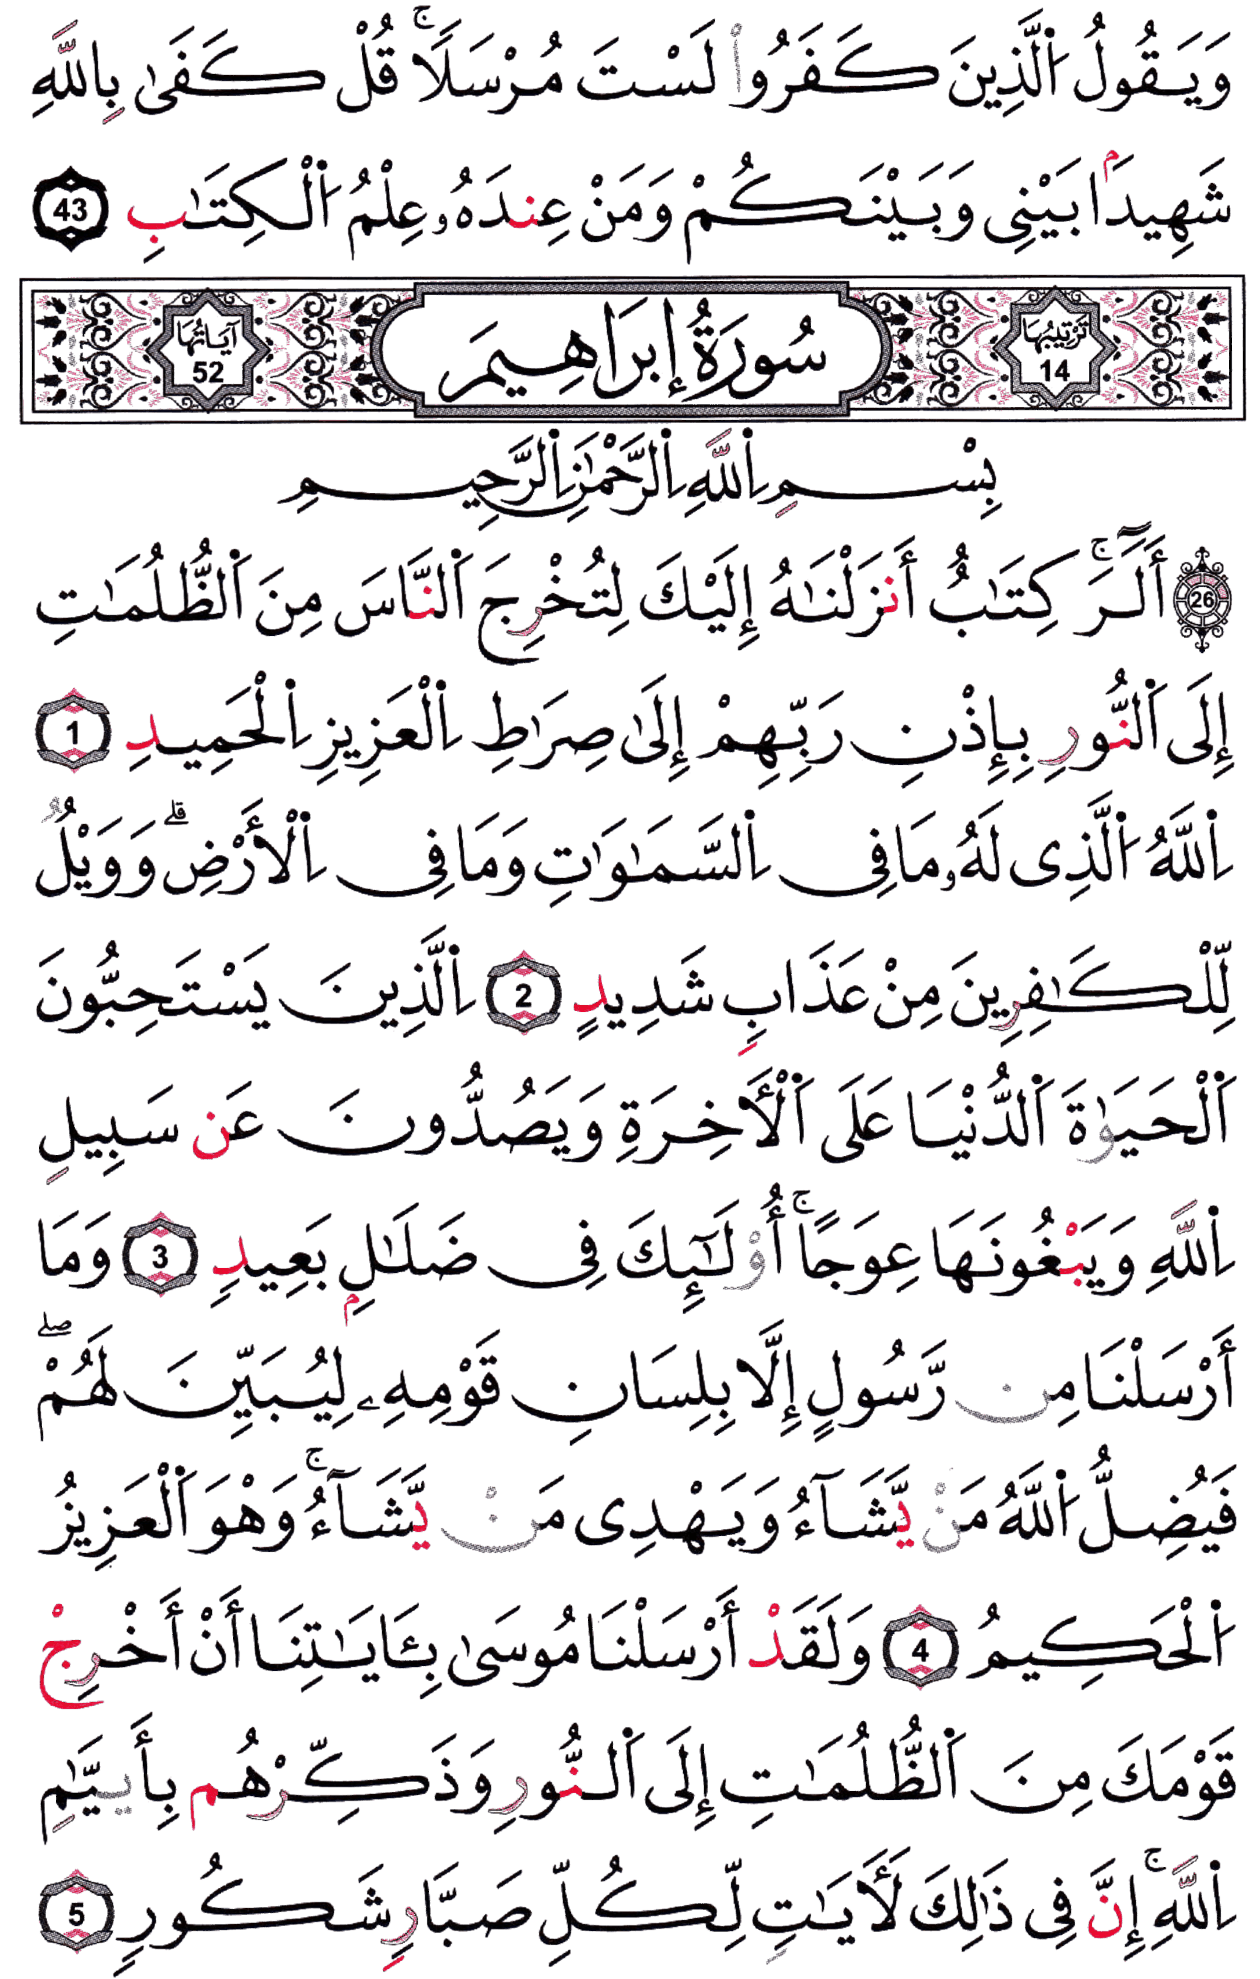 وَيَقُولُ اُ۬لَّذِينَ كَفَرُواْ لَسْتَ مُرْسَلاٗۖ قُلْ كَف۪ىٰ بِاللَّهِ
شَهِيداَۢ بَيْنِى وَبَيْنَكُمْ وَمَنْ عِندَهُۥ عِلْمُ اُ۬لْكِتَٰبِ 43
تَرْتِيبُهَا 14
سُورَةُ إِبرَاهِيمَ
آيَاتُهَا 52
بِسْمِ اِ۬للَّهِ اِ۬لرَّحْمَٰنِ اِ۬لرَّحِيمِ
26 أَلَٓرَۚ كِتَٰبٌ أَنزَلْنَٰهُ إِلَيْكَ لِتُخْرِجَ اَ۬لنَّاسَ مِنَ اَ۬لظُّلُمَٰتِ
إِلَى اَ۬لنُّورِ بِإِذْنِ رَبِّهِمْ إِلَىٰ صِرَٰطِ اِ۬لْعَزِيزِ اِ۬لْحَمِيدِ 1
اِ۬للَّهُ اُ۬لَّذِى لَهُۥ مَا فِى اِ۬لسَّمَٰوَٰتِ وَمَا فِى اِ۬لْأَرْضِۗ وَوَيْلٌ
لِّلْكَٰفِرِينَ مِنْ عَذَابٍ شَدِيدٍ 2 اِ۬لَّذِينَ يَسْتَحِبُّونَ
اَ۬لْحَيَوٰةَ اَ۬لدُّنْيَا عَلَى اَ۬لْأٓخِرَةِ وَيَصُدُّونَ عَن سَبِيلِ
اِ۬للَّهِ وَيَبْغُونَهَا عِوَجاًۚ أُوْلَٰٓئِكَ فِى ضَلَٰلِۢ بَعِيدٍ 3 وَمَا
أَرْسَلْنَا مِن رَّسُولٍ إِلَّا بِلِسَانِ قَوْمِهِۦ لِيُبَيِّنَ لَهُمْۖ
فَيُضِلُّ اُ۬للَّهُ مَنْ يَّشَآءُ وَيَهْدِى مَنْ يَّشَآءُۚ وَهْوَ اَ۬لْعَزِيزُ
اُ۬لْحَكِيمُ 4 وَلَقَدْ أَرْسَلْنَا مُوسَىٰ بِـَٔايَٰتِنَا أَنْ أَخْرِجْ
قَوْمَكَ مِنَ اَ۬لظُّلُمَٰتِ إِلَى اَ۬لنُّورِ وَذَكِّرْهُم بِأَيَّيٰمِ
اِ۬للَّهِۚ إِنَّ فِى ذَٰلِكَ لَأٓيَٰتٍ لِّكُلِّ صَبَّارٍ شَكُورٍ 5